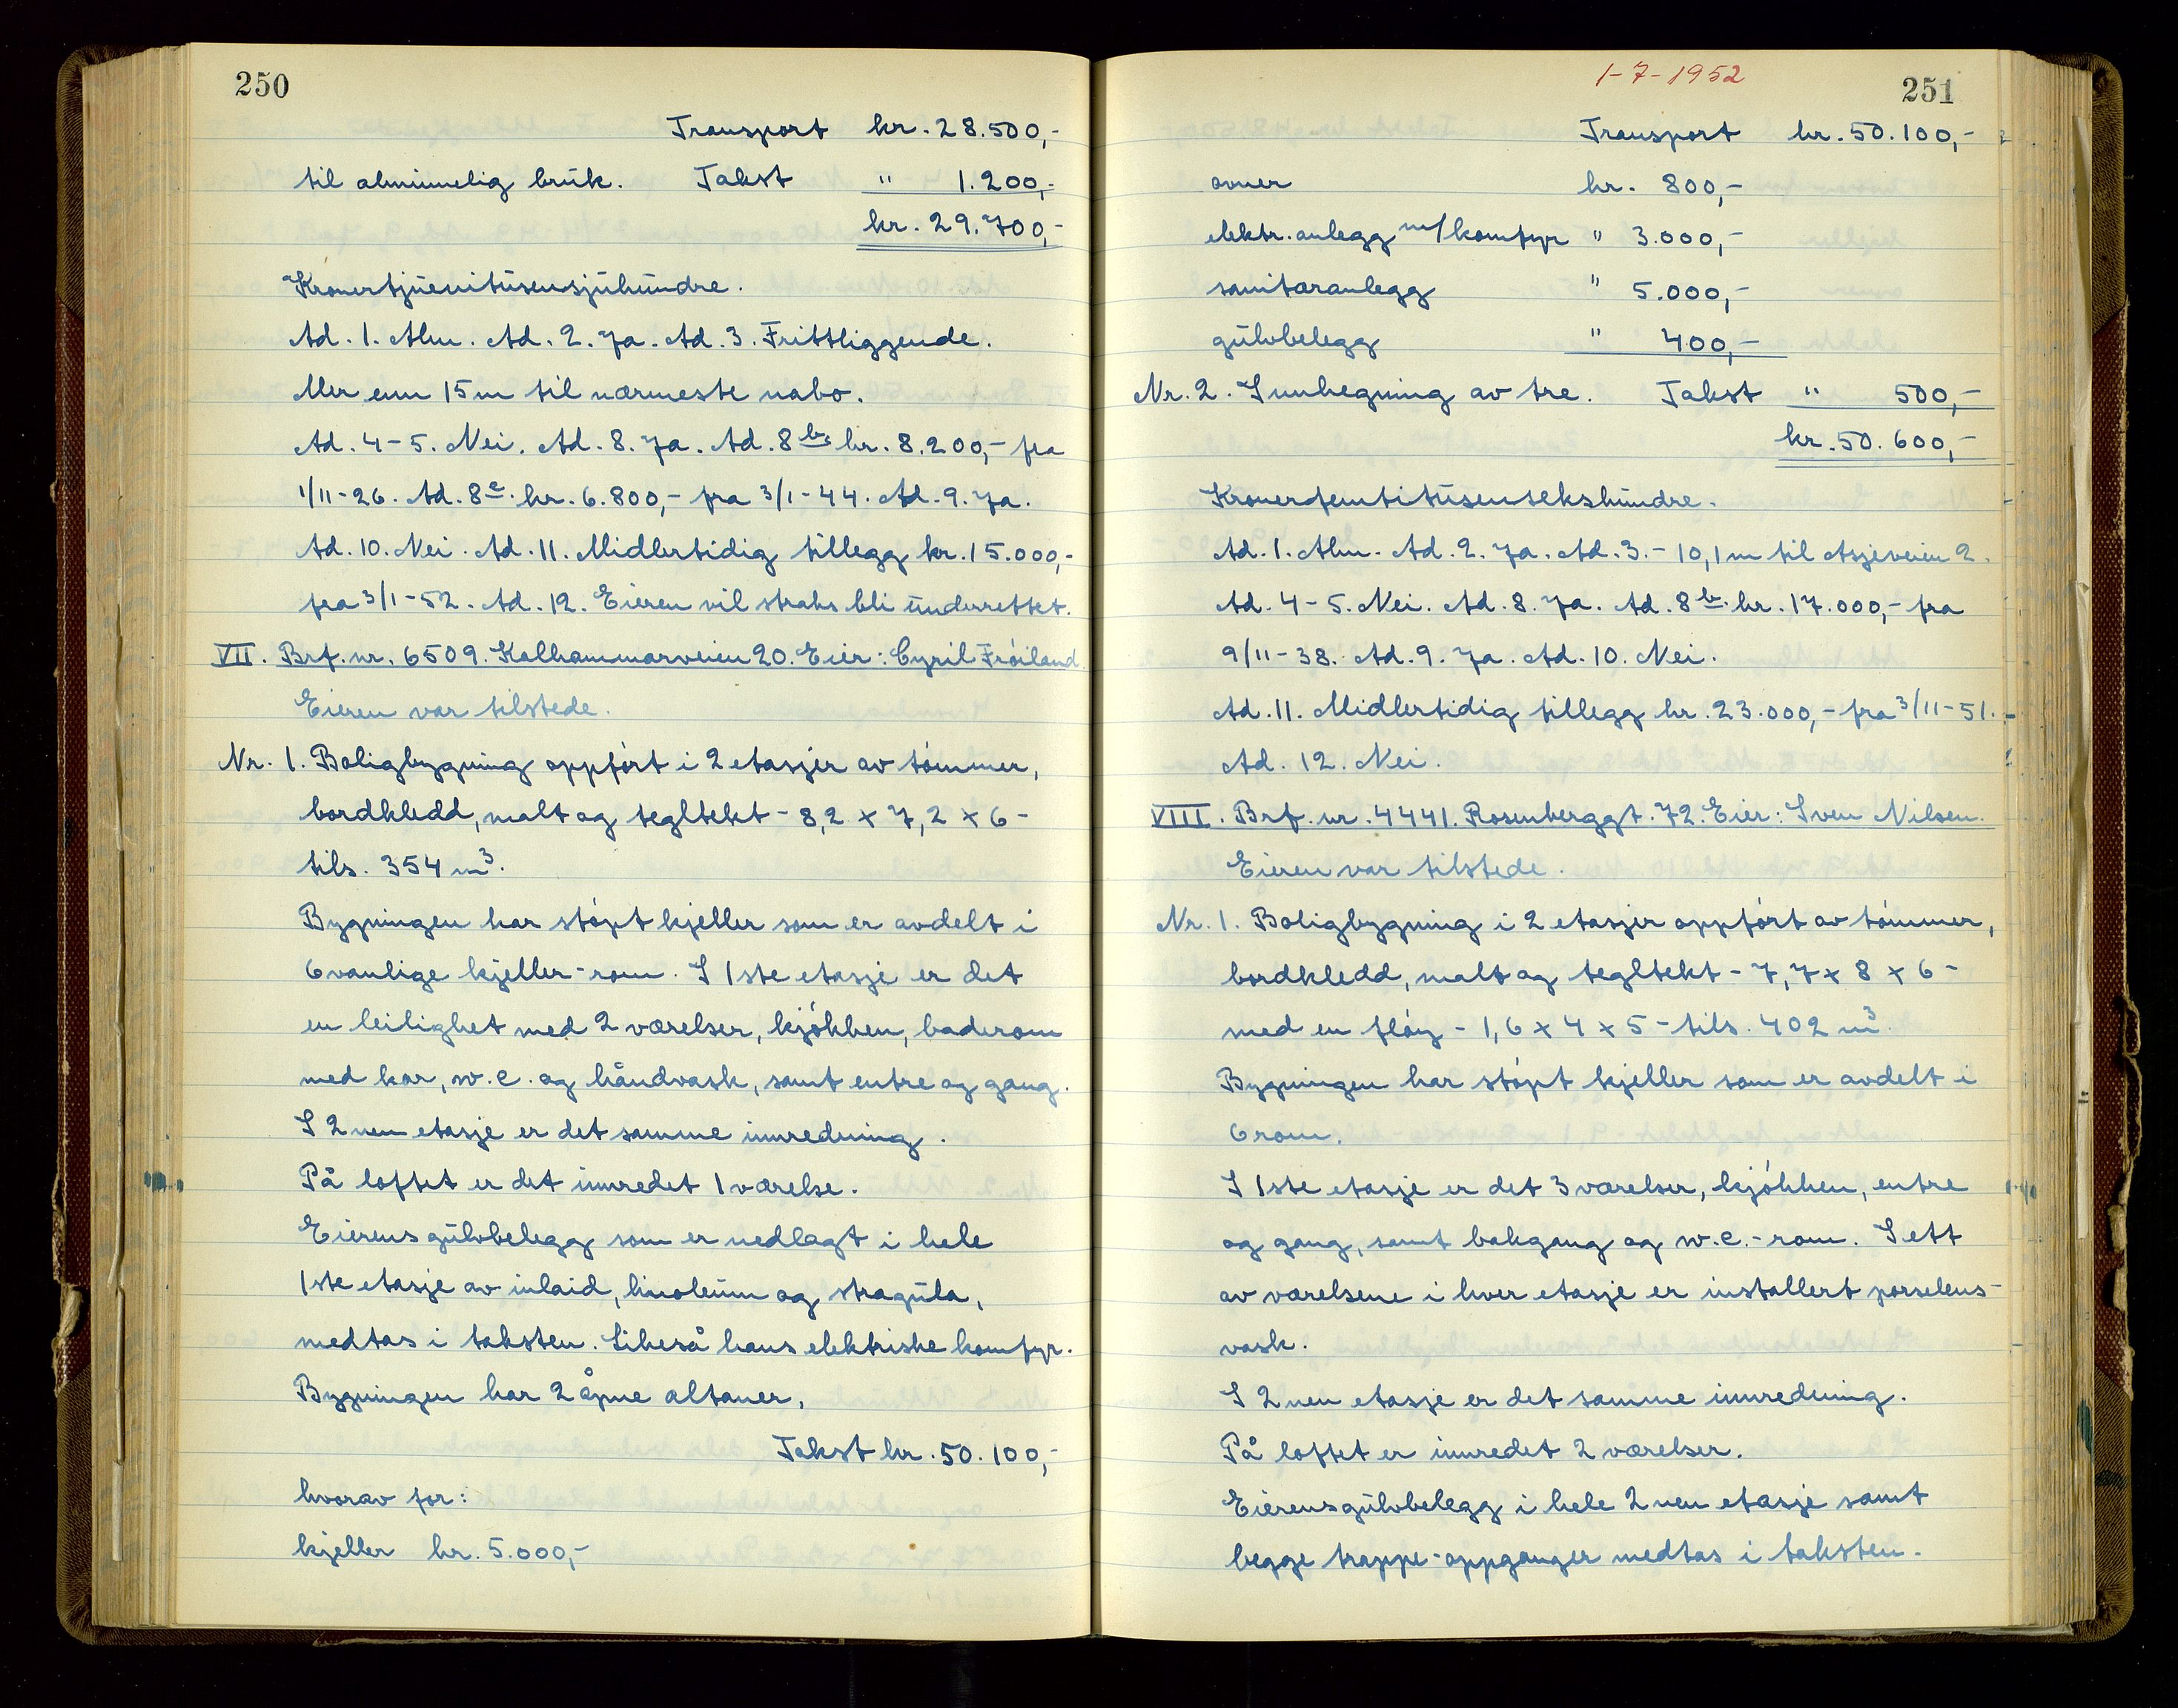 250
Transport kr. 28.500,-
til alminnelig bruk. Takst " 1.200,-
kr. 29.700,-
Kronertjuenitusensjuhundre.
Ad. 1. Alm. Ad. 2. Ja. Ad. 3. Frittliggende.
Mer enn 15 m til nærmeste nabo.
Ad. 4-5. Nei. Ad. 8. Ja. Ad. 8b. kr. 8.200,- fra
1/11-26. Ad. 8c. kr. 6.800,- fra 3/1-44. Ad. 9. Ja.
Ad. 10. Nei. Ad. 11. Midlertidig tillegg kr. 15.000,-
fra 3/1-52. Ad. 12. Eieren vil straks bli underrettet.
VII. Brf. nr. 6509. Kalhammarveien 20. Eier: Cyril Fróiland
Eieren var tilstede.
Nr. 1. Boligbygning oppfórt i 2 etasjer av tómmer,
bordkledd, malt og tegltekt - 8,2 x 7,2 x 6 -
tils. 354 m³.
Bygningen har stópt kjeller som er avdelt i
6 vanlige kjeller-rom. I 1ste etasje er det
en leilighet med 2 værelser, kjókken, baderom
med kar, w.c. og håndvask, samt entre og gang.
I 2nen etasje er det samme innredning.
På loftet er det innredet 1 værelse.
Eierens gulvbelegg som er nedlagt i hele
1ste etasje av inlaid, linoleum og stragula,
medtas i taksten. Likeså hans elektriske komfyr.
Bygningen har 2 åpne altaner,
Takst kr. 50.100,-
hvorav for:
kjeller kr. 5.000,-
1-7-1952
251
Transport kr. 50.100,-
ovner kr. 800,-
elektr. anlegg m/komfyr " 3.000,-
sanitæranlegg " 5.000,-
gulvbelegg " 400,-
Nr. 2. Innhegning av tre. Takst " 500,-
kr. 50.600,-
Kronerfemtitusensekshundre.
Ad. 1. Alm. Ad. 2. Ja. Ad. 3. - 10,1 m til Asjeveien 2.
Ad. 4-5. Nei. Ad. 8. Ja. Ad. 8b. kr. 17.000,- fra
9/11-38. Ad. 9. Ja. Ad. 10. Nei.
Ad. 11. Midlertidig tillegg kr. 23.000,- fra 3/11-51.
Ad. 12. Nei.
VIII. Brf. nr. 4441. Rosenberggt. 72. Eier: Sven Nilsen.
Eieren var tilstede.
Nr. 1. Boligbygning i 2 etasjer oppfórt av tómmer,
bordkledd, malt og tegltekt - 7,7 x 8 x 6 -
med en flóy - 1,6 x 4 x 5 - tils. 402 m³.
Bygningen har stópt kjeller som er avdelt i
6 rom.
I 1ste etasje er det 3 værelser, kjókken, entre
og gang, samt bakgang og w.c.-rom. I ett
av værelsene i hver etasje er installert porselens-
vask.
I 2nen etasje er det samme innredning.
På loftet er innredet 2 værelser.
Eierens gulvbelegg i hele 2nen etasje samt
begge trappe-oppganger medtas i taksten.